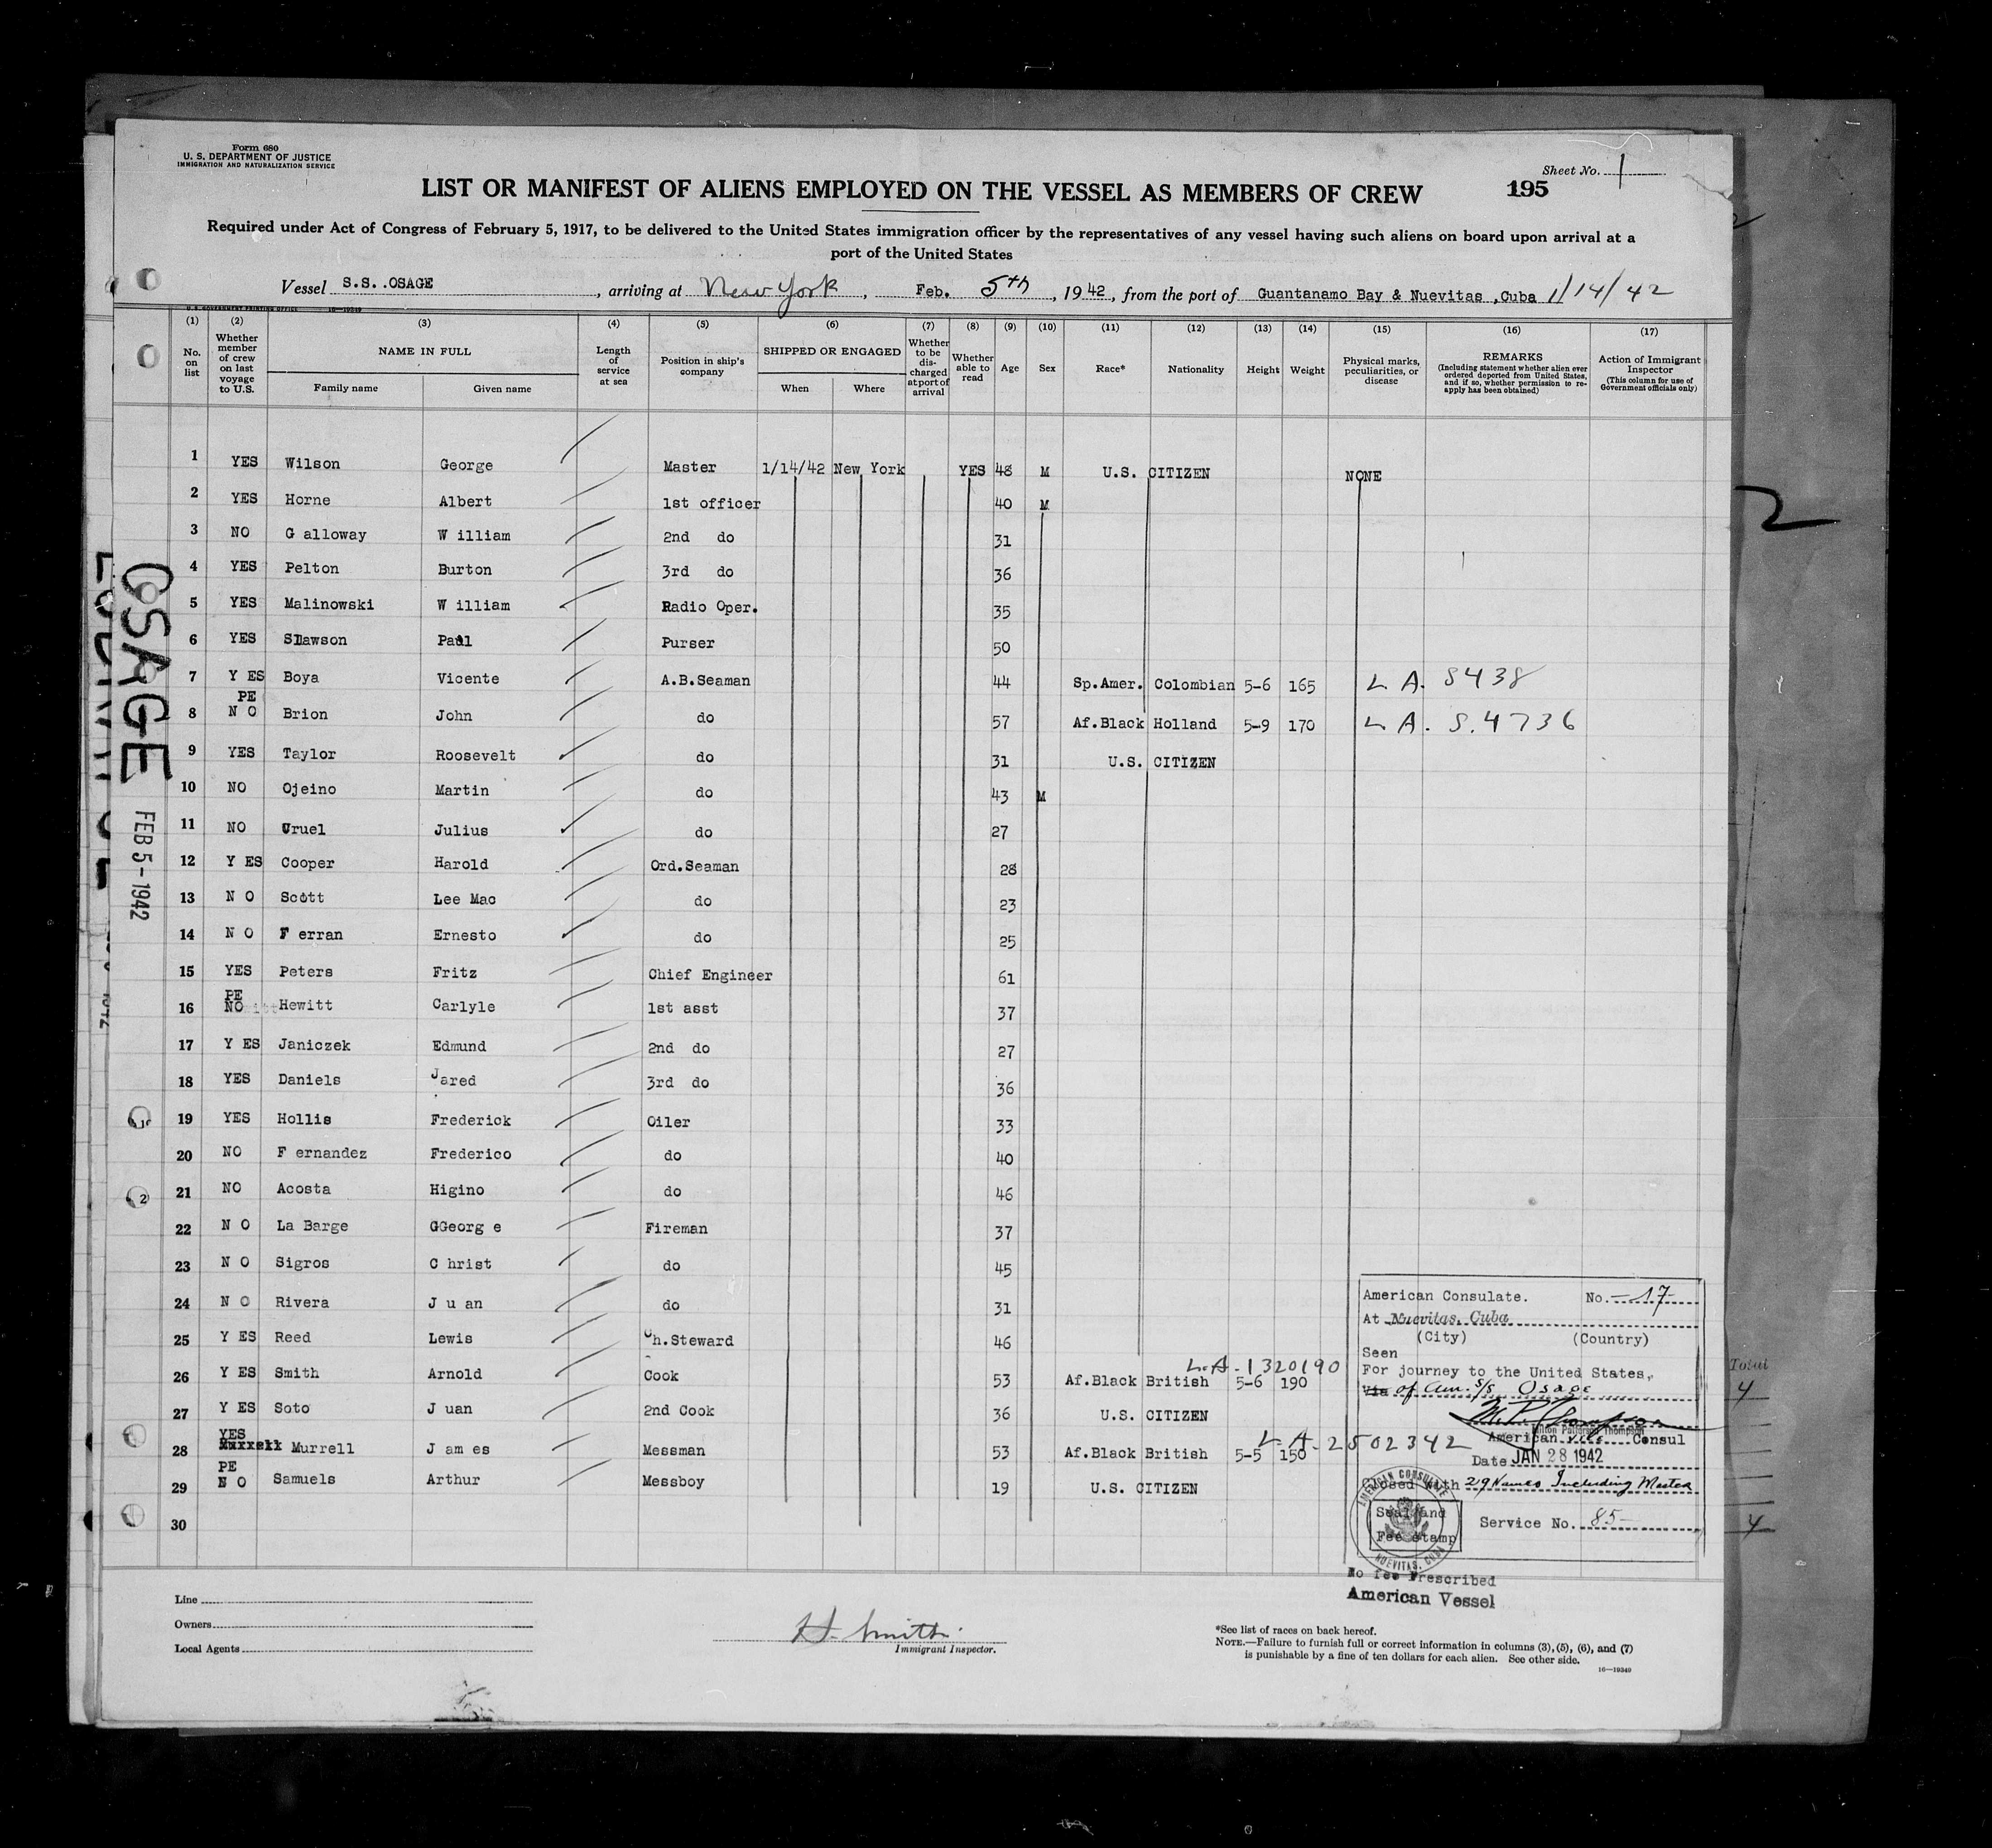 Form 680
U. S. DEPARTMENT OF JUSTICE
IMMIGRATION AND NATURALIZATION SERVICE
Sheet No. 1
LIST OR MANIFEST OF ALIENS EMPLOYED ON THE VESSEL AS MEMBERS OF CREW
195
Required under Act of Congress of February 5, 1917, to be delivered to the United States immigration officer by the representatives of any vessel having such aliens on board upon arrival at a
port of the United States
Vessel S.S. .OSAGE, arriving at New York, Feb. 5th, 1942, from the port of Guantanamo Bay & Nuevitas ,Cuba 1/14/42
U. S. GOVERNMENT PRINTING OFFICE 16—19349
(1) (2) (3) (4) (5) (6) (7) (8) (9) (10) (11) (12) (13) (14) (15) (16) (17)
No. on list
Whether member of crew on last voyage to U.S.
NAME IN FULL
Family name
Given name
Length of service at sea
Position in ship's company
SHIPPED OR ENGAGED
When
Where
Whether to be discharged at port of arrival
Whether able to read
Age
Sex
Race*
Nationality
Height
Weight
Physical marks, peculiarities, or disease
REMARKS
(Including statement whether alien ever ordered deported from United States, and if so, whether permission to reapply has been obtained)
Action of Immigrant Inspector
(This column for use of Government officials only)
1 YES Wilson George Master 1/14/42 New York YES 48 M U.S. CITIZEN NONE
2 YES Horne Albert 1st officer 40 M
3 NO G alloway W illiam 2nd do 31
4 YES Pelton Burton 3rd do 36
5 YES Malinowski W illiam Radio Oper. 35
6 YES Slawson Paul Purser 50
7 Y ES Boya Vicente A.B.Seaman 44 Sp.Amer. Colombian 5-6 165 L A. 8438
PE
8 N O Brion John do 57 Af.Black Holland 5-9 170 L A. S.4736
9 YES Taylor Roosevelt do 31 U.S. CITIZEN
10 NO Ojeino Martin do 43 M
11 NO Uruel Julius do 27
12 Y ES Cooper Harold Ord.Seaman 28
13 N O Scott Lee Mac do 23
14 N O F erran Ernesto do 25
15 YES Peters Fritz Chief Engineer 61
PE
16 NO Hewitt Carlyle 1st asst 37
17 Y ES Janiczek Edmund 2nd do 27
18 YES Daniels Jared 3rd do 36
19 YES Hollis Frederick Oiler 33
20 NO F ernandez Frederico do 40
21 NO Acosta Higino do 46
22 N O La Barge GGeorg e Fireman 37
23 N O Sigros C hrist do 45
24 N O Rivera J u an do 31
25 Y ES Reed Lewis Ch.Steward 46
L.A-1320190
26 Y ES Smith Arnold Cook 53 Af.Black British 5-6 190
27 Y ES Soto J uan 2nd Cook 36 U.S. CITIZEN
YES
28 Murrell Murrell J am es Messman 53 Af.Black British 5-5 150 L.A-2502342
PE
29 N O Samuels Arthur Messboy 19 U.S. CITIZEN
30
OSAGE
FEB 5-1942
2
American Consulate. No. 17
At Nuevitas, Cuba
(City) (Country)
Seen
For journey to the United States,
Via of Am. S/S Osage
Milton Patterson Thompson
American Vice Consul
Date JAN 28 1942
Closed with 29 Names Including Master
Seal and
Fee Stamp
Service No. 85
AMERICAN CONSULATE
NUEVITAS, CUBA
No fee Prescribed
American Vessel
Total
4
4
Line
Owners
Local Agents
H. Smith
Immigrant Inspector.
*See list of races on back hereof.
NOTE.—Failure to furnish full or correct information in columns (3), (5), (6), and (7)
is punishable by a fine of ten dollars for each alien. See other side.
16—19349